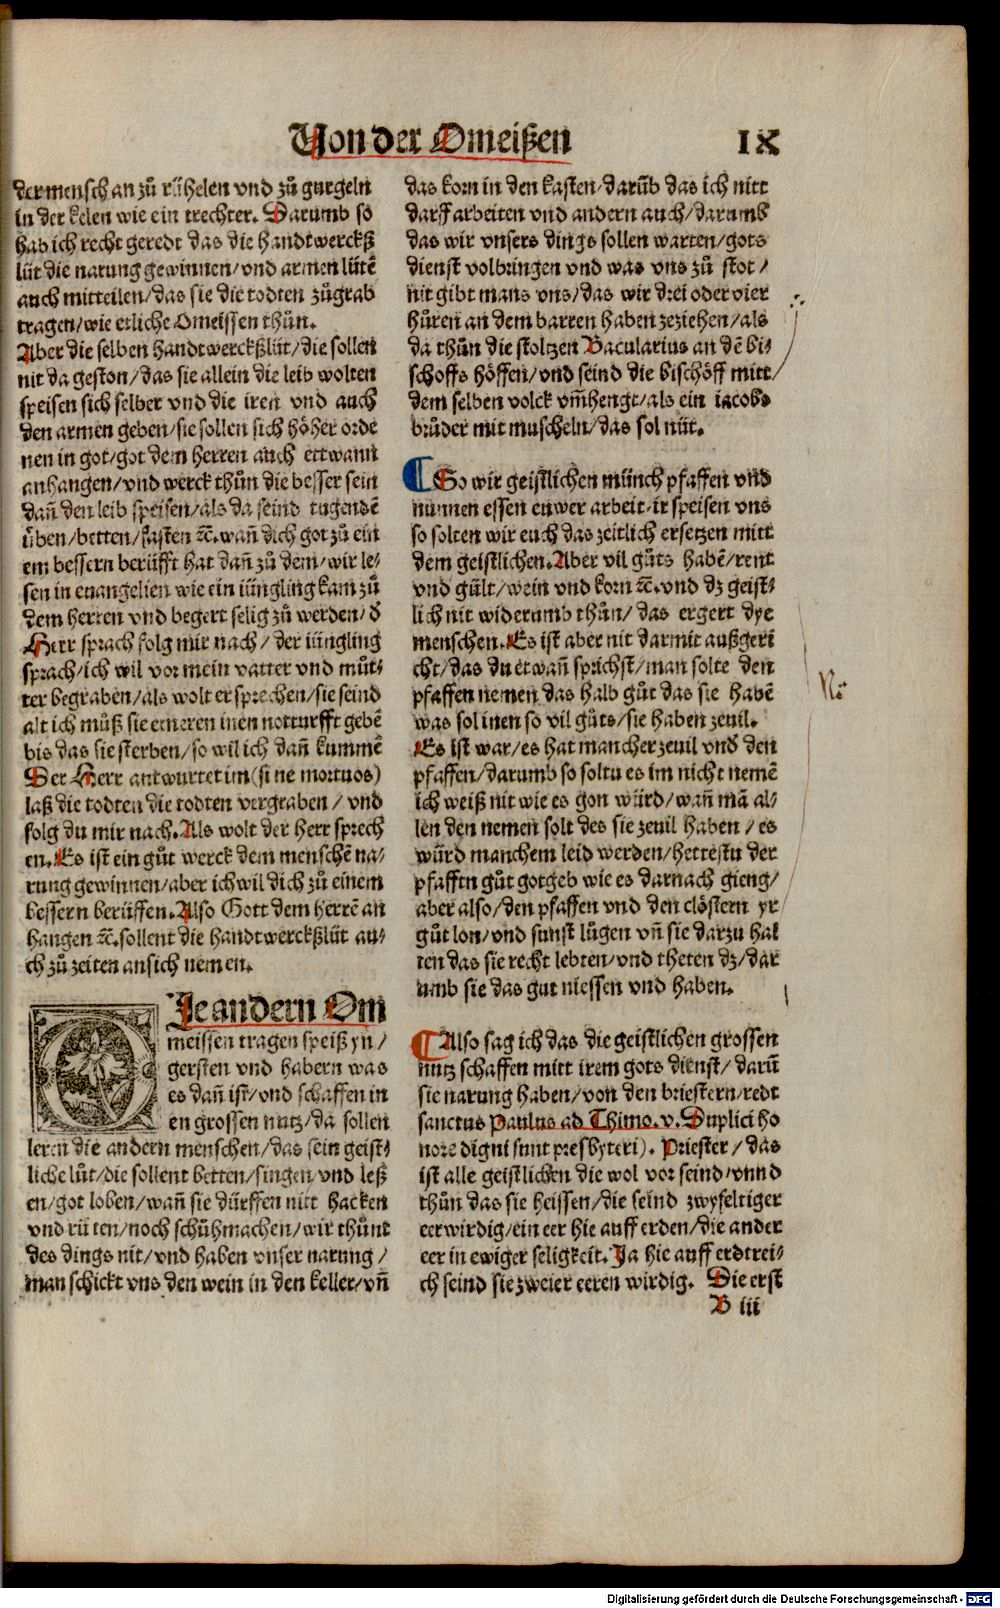 Von der Omeißen IX
der mensch an zů rühelen vnd zů gurgeln
in der kelen wie ein trechter. Darumb so
hab ich recht geredt das die handtwerckß
lüt die narung gewinnen/vnd armen lütē
auch mitteilen/das sie die todten zů grab
tragen/wie etliche Omeissen thůn.
Aber die selben handtwerckßlüt/die sollen
nit da geston/das sie allein die leib wolten
speisen sich selber vnd die iren vnd auch
den armen geben/sie sollen sich höher orde
nen in got/got dem herren auch ettwann
anhangen/vnd werck thůn die besser sein
dañ den leib speisen/als da seind tugendē
ůben/betten/fasten ⁊č. wañ dich got zů ein
em bessern berüfft hat dañ zů dem/wir le⸗
sen in euangelien wie ein iüngling kam zů
dem herren vnd begert selig zů werden/d̓
Herr sprach folg mir nach/der iüngling
sprach/ich wil vor mein vatter vnd můt⸗
ter begraben/als wolt er sprechen/sie seind
alt ich můß sie erneren inen notturfft gebē
bis das sie sterben/so wil ich dañ kummē
Der Herr antwurtet im (sine mortuos)
laß die todten die todten vergraben/vnd
folg du mir nach. Als wolt der herr sprech
en. Es ist ein gůt werck dem menschē na⸗
rung gewinnen/aber ich wil dich zů einem
bessern berüffen. Also Gott dem herrē an
hangen ⁊č. sollent die handtwerckßlüt au⸗
ch zů zeiten an sich nemen.
DJe andern Om
meissen tragen speiß yn/
gersten vnd habern was
es dañ ist/vnd schaffen in
en grossen nutz/da sollen
leren die andern menschen/das sein geist⸗
liche lüt/die sollent betten/singen vnd leß
en/got loben/wañ sie dürffen nitt hacken
vnd rüten/noch schůhmachen/wir thůnt
des dings nit/vnd haben vnser narung/
man schickt vns den wein in den keller/vñ
das korn in den kasten/darūb das ich nitt
darff arbeiten vnd andern auch/darumb
das wir vnsers dings sollen warten/gots
dienst volbringen vnd was vns zů stot/
nit gibt mans vns/das wir drei oder vier
hůren an dem barren haben zeziehen/als
da thůn die stoltzen Bacularius an dē bi⸗
schoffs höffen/vnd seind die bischöff mitt
dem selben volck vm̄hengt/als ein iacobs
brůder mit muscheln/das sol nüt.
¶So wir geistlichen münch pfaffen vnd
nunnen essen euwer arbeit/ir speisen vns
so solten wir euch das zeitlich ersetzen mitt
dem geistlichen. Aber vil gůts habē/rent
vnd gült/wein vnd korn ⁊č. vnd dz geist⸗
lich nit widerumb thůn/das ergert dye
menschen. Es ist aber nit darmit außgeri
cht/das du etwañ sprichst/man solte den
pfaffen nemen das halb gůt das sie habē
was sol inen so vil gůts/sie haben zeuil.
Es ist war/es hat mancher zeuil vnd̓ den
pfaffen/darumb so soltu es im nicht nemē
ich weiß nit wie es gon würd/wañ mā al⸗
len den nemen solt des sie zeuil haben/es
würd manchem leid werden/hettestu der
pfafftn gůt got geb wie es darnach gieng/
aber also/den pfaffen vnd den clöstern yr
gůt lon/vnd sunst lůgen vñ sie darzu hal
ten das sie recht lebten/vnd theten dz/dar
umb sie das gut niessen vnd haben.
¶Also sag ich das die geistlichen grossen
nutz schaffen mitt irem gots dienst/darū
sie narung haben/von den briestern/redt
sanctus Paulus ad Thimo. v. Duplici ho
nore digni sunt presbyteri). Priester/das
ist alle geistlichen die wol vor seind/vnnd
thůn das sie heissen/die seind zwyfeltiger
eer wirdig/ein eer hie auff erden/die ander
eer in ewiger seligkeit. Ja hie auff erdtrei⸗
ch seind sie zweier eeren wirdig. Die erst
B iii
Digitalisierung gefördert durch die Deutsche Forschungsgemeinschaft - DFG